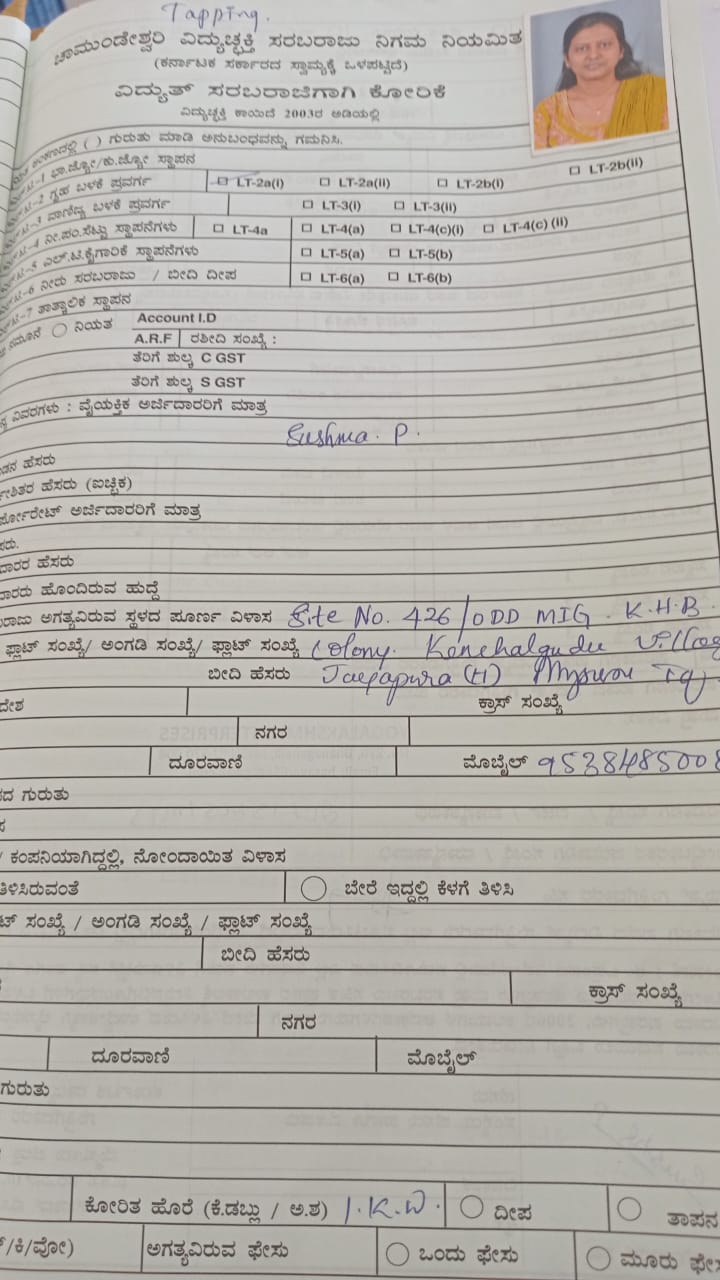 Tapping.
ಚಾಮುಂಡೇಶ್ವರಿ ವಿದ್ಯುಚ್ಛಕ್ತಿ ಸರಬರಾಜು ನಿಗಮ ನಿಯಮಿತ
(ಕರ್ನಾಟಕ ಸರ್ಕಾರದ ಸ್ವಾಮ್ಯಕ್ಕೆ ಒಳಪಟ್ಟಿದೆ)
ವಿದ್ಯುತ್ ಸರಬರಾಜಿಗಾಗಿ ಕೋರಿಕೆ
ವಿದ್ಯುಚ್ಛಕ್ತಿ ಕಾಯಿದೆ 2003ರ ಅಡಿಯಲ್ಲಿ
( ) ಗುರುತು ಮಾಡಿ ಅನುಬಂಧವನ್ನು ಗಮನಿಸಿ.
-1 ಭಾ.ಜ್ಯೋ/ಕು.ಜ್ಯೋ ಸ್ಥಾಪನ
-2 ಗೃಹ ಬಳಕೆ ಪ್ರವರ್ಗ LT-2a(i) LT-2a(ii) LT-2b(i) LT-2b(ii)
-3 ವಾಣಿಜ್ಯ ಬಳಕೆ ಪ್ರವರ್ಗ LT-3(i) LT-3(ii)
-4 ನೀ.ಪಂ.ಸೆಟ್ಟು ಸ್ಥಾಪನೆಗಳು LT-4a LT-4(a) LT-4(c)(i) LT-4(c) (ii)
-5 ಎಲ್.ಟಿ.ಕೈಗಾರಿಕೆ ಸ್ಥಾಪನೆಗಳು LT-5(a) LT-5(b)
-6 ನೀರು ಸರಬರಾಜು / ಬೀದಿ ದೀಪ LT-6(a) LT-6(b)
-7 ತಾತ್ಕಾಲಿಕ ಸ್ಥಾಪನ
ನಮೂನೆ ನಿಯತ Account I.D
A.R.F ರಶೀದಿ ಸಂಖ್ಯೆ :
ತೆರಿಗೆ ಶುಲ್ಕ C GST
ತೆರಿಗೆ ಶುಲ್ಕ S GST
ವಿವರಗಳು : ವೈಯಕ್ತಿಕ ಅರ್ಜಿದಾರರಿಗೆ ಮಾತ್ರ
Sushma. P.
ಹೆಸರು
ಹೆಸರು (ಐಚ್ಛಿಕ)
ಅರ್ಜಿದಾರರಿಗೆ ಮಾತ್ರ
ಹೆಸರು
ಹೊಂದಿರುವ ಹುದ್ದೆ
ಅಗತ್ಯವಿರುವ ಸ್ಥಳದ ಪೂರ್ಣ ವಿಳಾಸ Site No. 426/ODD MIG. K.H.B.
ಫ್ಲಾಟ್ ಸಂಖ್ಯೆ/ ಅಂಗಡಿ ಸಂಖ್ಯೆ/ ಫ್ಲಾಟ್ ಸಂಖ್ಯೆ Colony.
ಬೀದಿ ಹೆಸರು Jayapura (H)
ಕ್ರಾಸ್ ಸಂಖ್ಯೆ
ನಗರ
ದೂರವಾಣಿ ಮೊಬೈಲ್ 9538485008
ಗುರುತು
ಕಂಪನಿಯಾಗಿದ್ದಲ್ಲಿ, ನೋಂದಾಯಿತ ವಿಳಾಸ
ತಿಳಿಸಿರುವಂತೆ ಬೇರೆ ಇದ್ದಲ್ಲಿ ಕೆಳಗೆ ತಿಳಿಸಿ
ಸಂಖ್ಯೆ / ಅಂಗಡಿ ಸಂಖ್ಯೆ / ಫ್ಲಾಟ್ ಸಂಖ್ಯೆ
ಬೀದಿ ಹೆಸರು
ಕ್ರಾಸ್ ಸಂಖ್ಯೆ
ನಗರ
ದೂರವಾಣಿ ಮೊಬೈಲ್
ಗುರುತು
ಕೋರಿತ ಹೊರೆ (ಕೆ.ಡಬ್ಲು / ಅ.ಶ) 1.K.W. ದೀಪ ತಾಪನ
ಅಗತ್ಯವಿರುವ ಫೇಸು ಒಂದು ಫೇಸು ಮೂರು